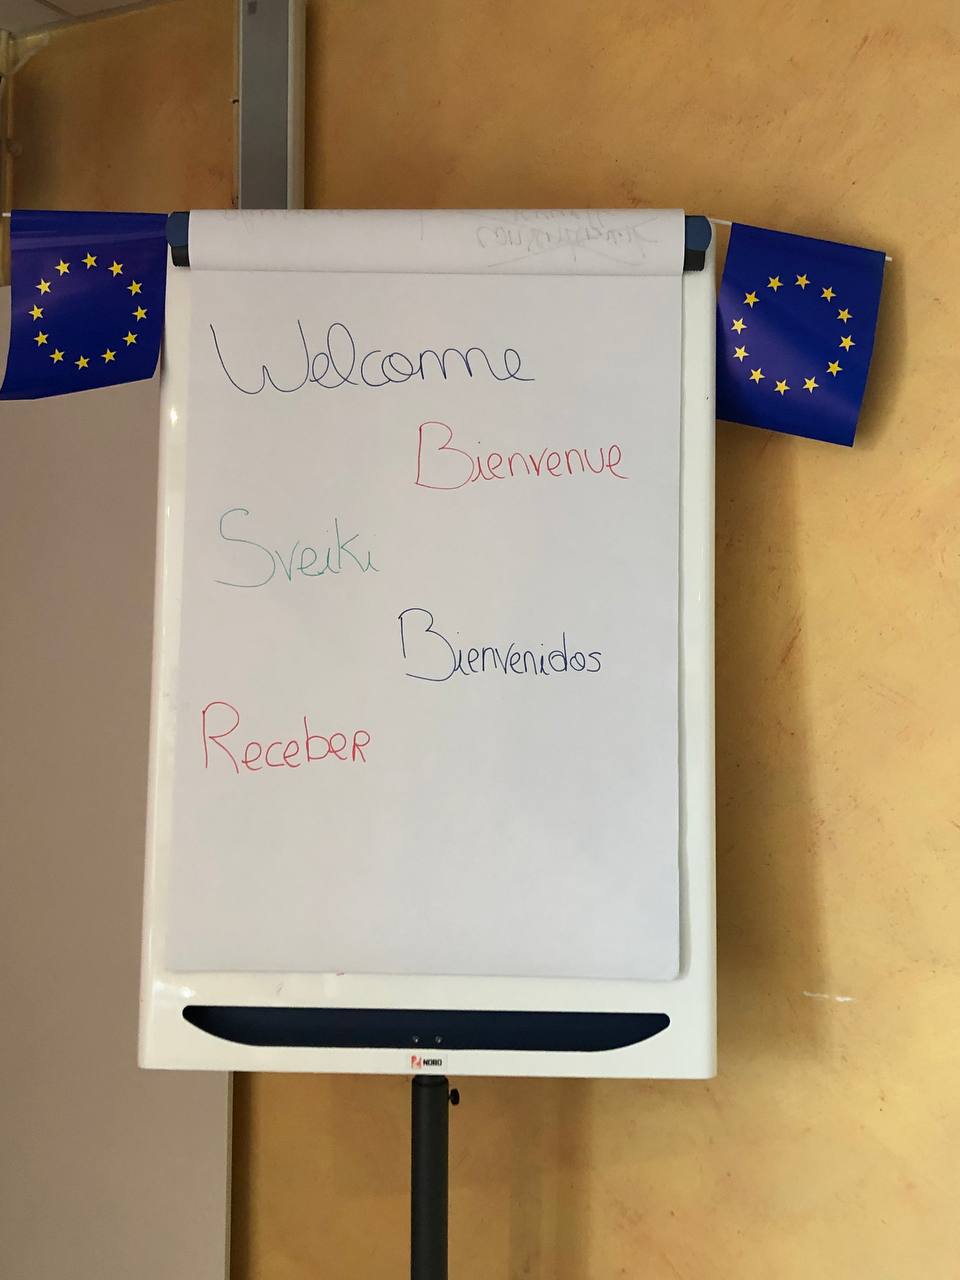 Welcome
Bienvenue
Sveiki
Bienvenidos
Receber
NOBO